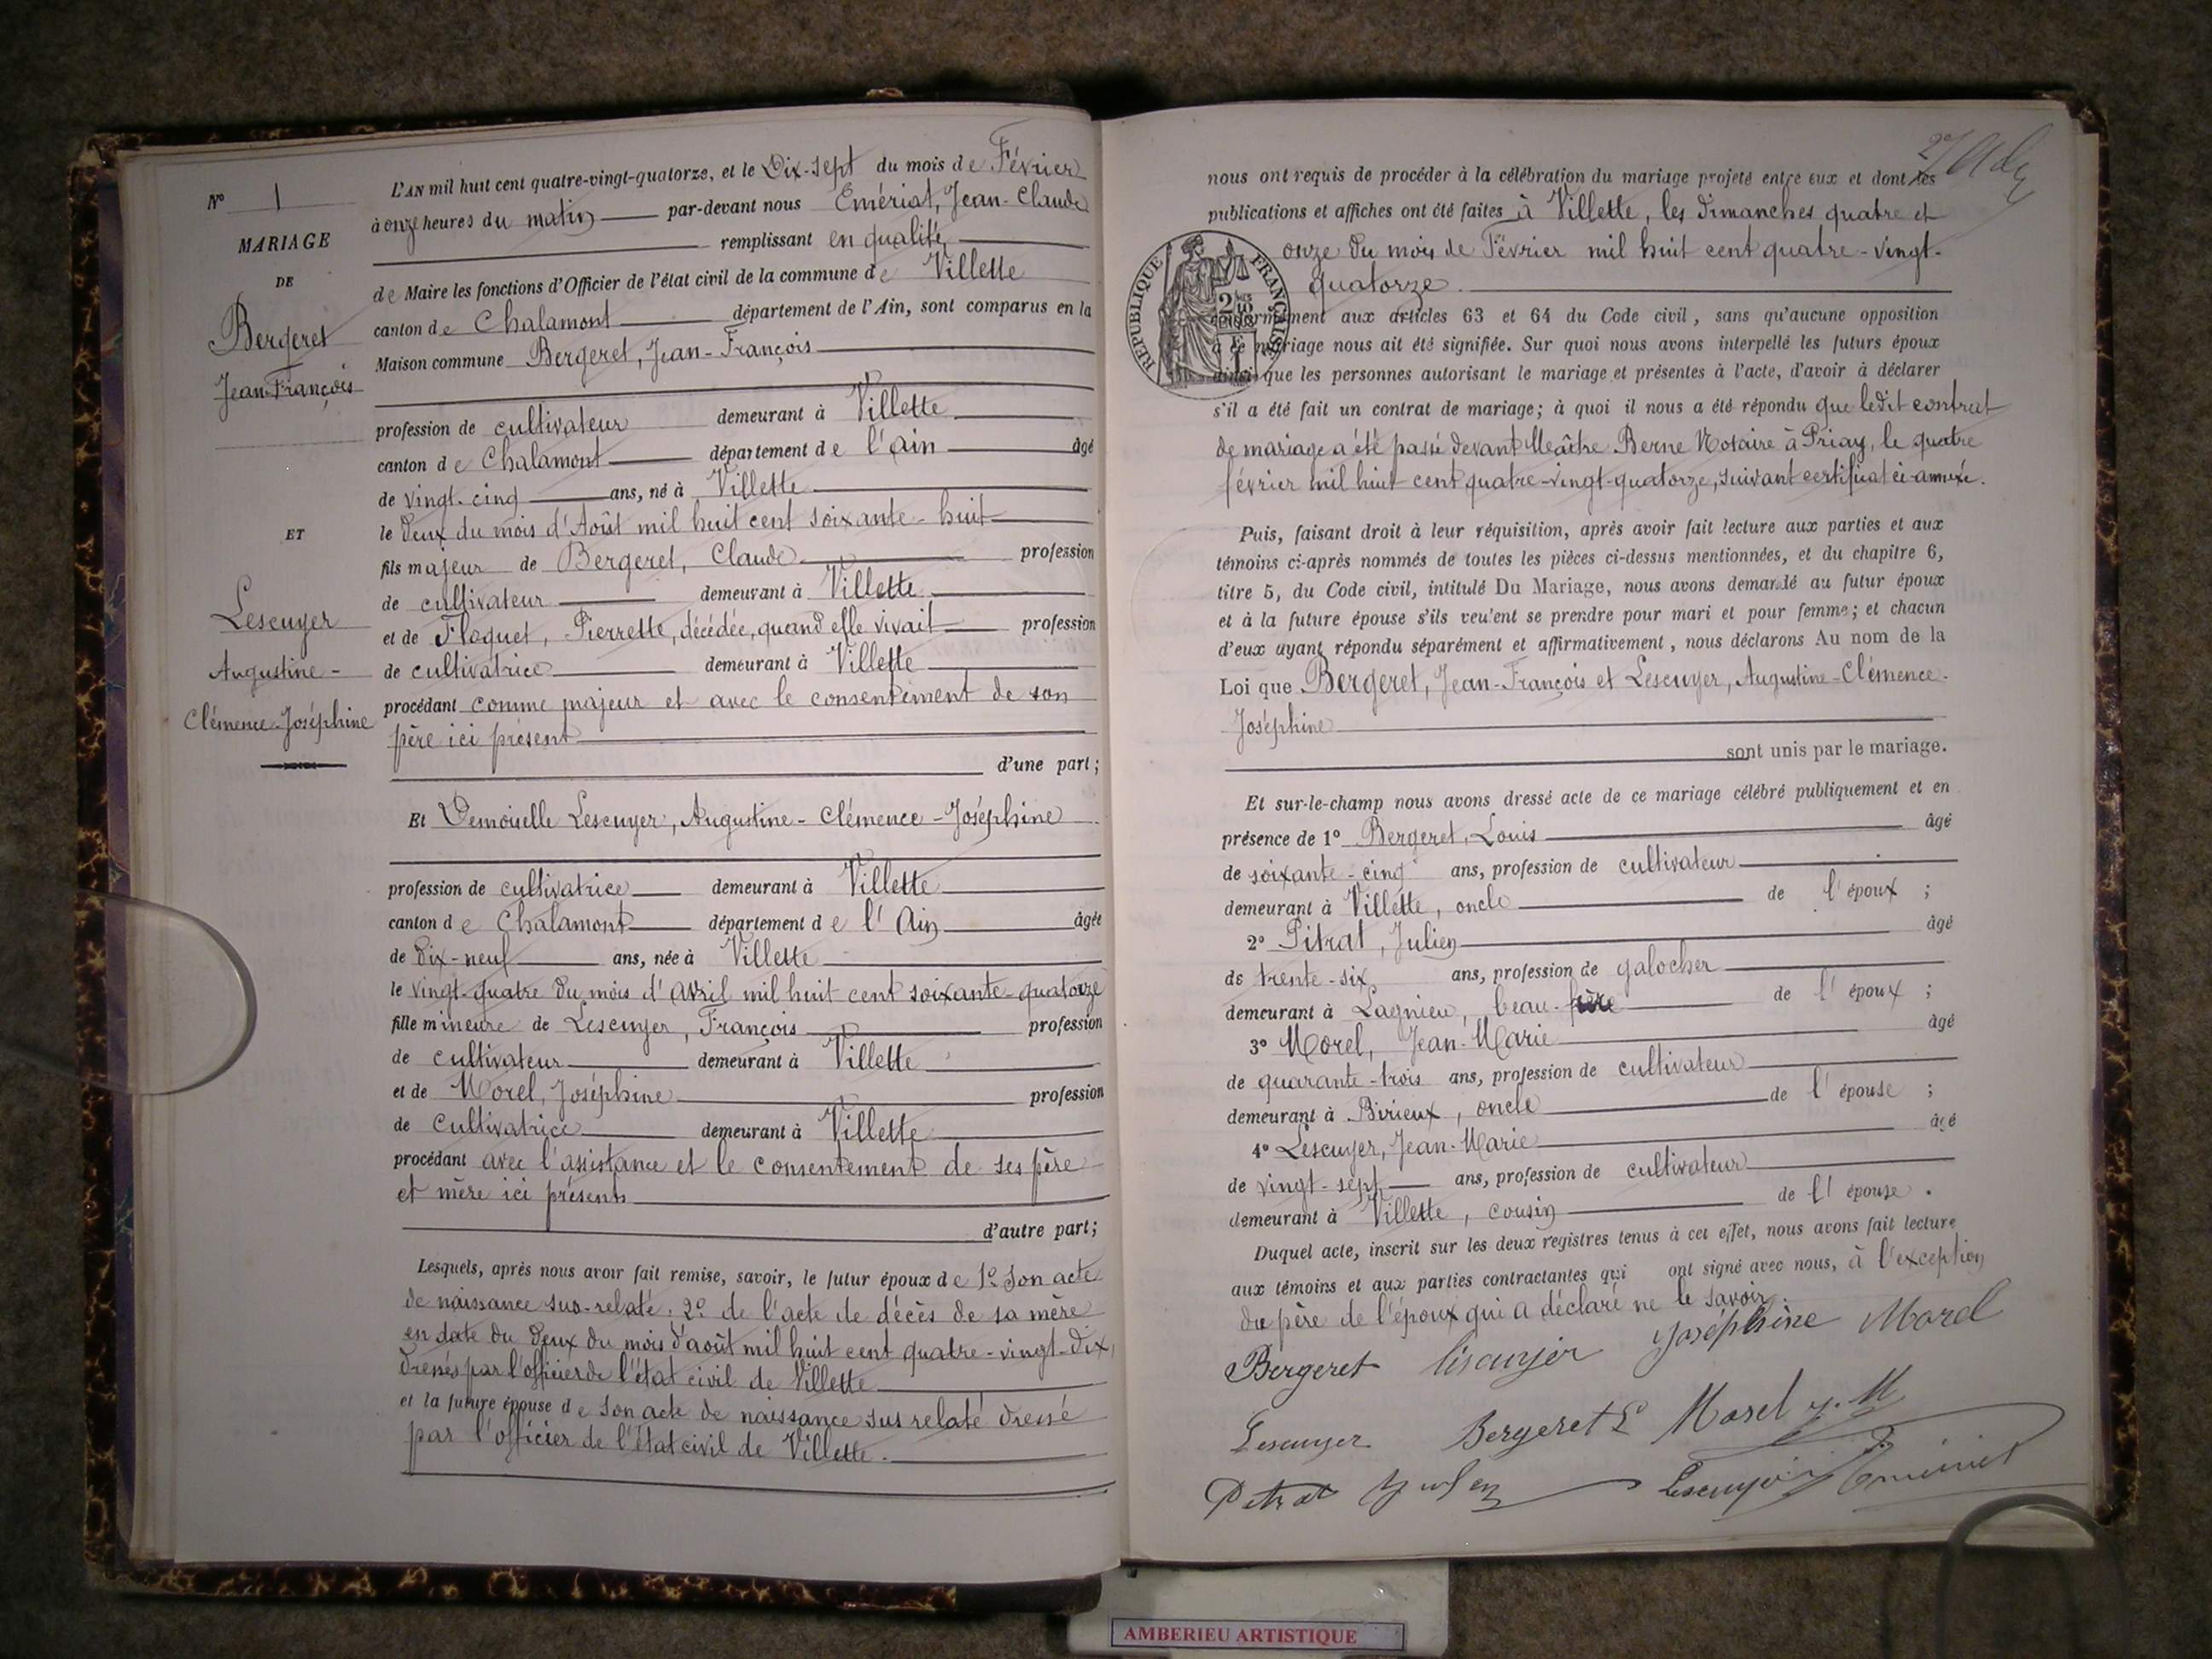 N° 1
MARIAGE
DE
Bergeret
Jean-François
ET
Lescuyer
Augustine-
Clémence-Joséphine
L'AN mil huit cent quatre-vingt-quatorze, et le Dix-sept du mois de Février
à onze heures du matin par-devant nous Emériat, Jean-Claude
remplissant en qualité
de Maire les fonctions d'Officier de l'état civil de la commune de Villette
canton de Chalamont département de l'Ain, sont comparus en la
Maison commune Bergeret, Jean-François
profession de cultivateur demeurant à Villette
canton de Chalamont département de l'Ain âgé
de vingt-cinq ans, né à Villette
le deux du mois d'Août mil huit cent soixante-huit
fils majeur de Bergeret, Claude profession
de cultivateur demeurant à Villette
et de Floquet, Pierrette, décédée, quand elle vivait profession
de cultivatrice demeurant à Villette
procédant comme majeur et avec le consentement de son
père ici présent
d'une part;
Et Demoiselle Lescuyer, Augustine-Clémence-Joséphine
profession de cultivatrice demeurant à Villette
canton de Chalamont département de l'Ain âgée
de Dix-neuf ans, née à Villette
le vingt-quatre du mois d'avril mil huit cent soixante-quatorze
fille mineure de Lescuyer, François profession
de cultivateur demeurant à Villette
et de Morel, Joséphine profession
de cultivatrice demeurant à Villette
procédant avec l'assistance et le consentement de ses père
et mère ici présents
d'autre part;
Lesquels, après nous avoir fait remise, savoir, le futur époux de 1° Son acte
de naissance sus-relaté. 2° de l'acte de décès de sa mère
en date du deux du mois d'août mil huit cent quatre-vingt-dix,
dressés par l'officier de l'état civil de Villette
et la future épouse de son acte de naissance sus relaté dressé
par l'officier de l'état civil de Villette.
nous ont requis de procéder à la célébration du mariage projeté entre eux et dont les
publications et affiches ont été faites à Villette, les dimanches quatre et
onze du mois de Février mil huit cent quatre-vingt-
quatorze.
RÉPUBLIQUE FRANÇAISE
conformément aux articles 63 et 64 du Code civil, sans qu'aucune opposition
à ce mariage nous ait été signifiée. Sur quoi nous avons interpellé les futurs époux
ainsi que les personnes autorisant le mariage et présentes à l'acte, d'avoir à déclarer
s'il a été fait un contrat de mariage; à quoi il nous a été répondu que ledit contrat
de mariage a été passé devant Meâtre Berne Notaire à Priay, le quatre
février mil huit cent quatre-vingt-quatorze, suivant certificat ci-annexé.
Puis, faisant droit à leur réquisition, après avoir fait lecture aux parties et aux
témoins ci-après nommés de toutes les pièces ci-dessus mentionnées, et du chapitre 6,
titre 5, du Code civil, intitulé Du Mariage, nous avons demandé au futur époux
et à la future épouse s'ils veulent se prendre pour mari et pour femme; et chacun
d'eux ayant répondu séparément et affirmativement, nous déclarons Au nom de la
Loi que Bergeret, Jean-François et Lescuyer, Augustine-Clémence-
Joséphine
sont unis par le mariage.
Et sur-le-champ nous avons dressé acte de ce mariage célébré publiquement et en
présence de 1° Bergeret, Louis âgé
de soixante-cinq ans, profession de cultivateur
demeurant à Villette, oncle de l'époux;
2° Pitrat, Julien âgé
de trente-six ans, profession de galocher
demeurant à Lagnieu, beau-frère de l'époux;
3° Morel, Jean-Marie âgé
de quarante-trois ans, profession de cultivateur
demeurant à Birieux, oncle de l'épouse;
4° Lescuyer, Jean-Marie âgé
de vingt-sept ans, profession de cultivateur
demeurant à Villette, cousin de l'épouse.
Duquel acte, inscrit sur les deux registres tenus à cet effet, nous avons fait lecture
aux témoins et aux parties contractantes qui ont signé avec nous, à l'exception
du père de l'époux qui a déclaré ne le savoir.
Bergeret lescuyer Joséphine Morel
Lescuyer Bergeret L Morel J. M
Pitrat Julien Lescuyer Emériat
AMBERIEU ARTISTIQUE